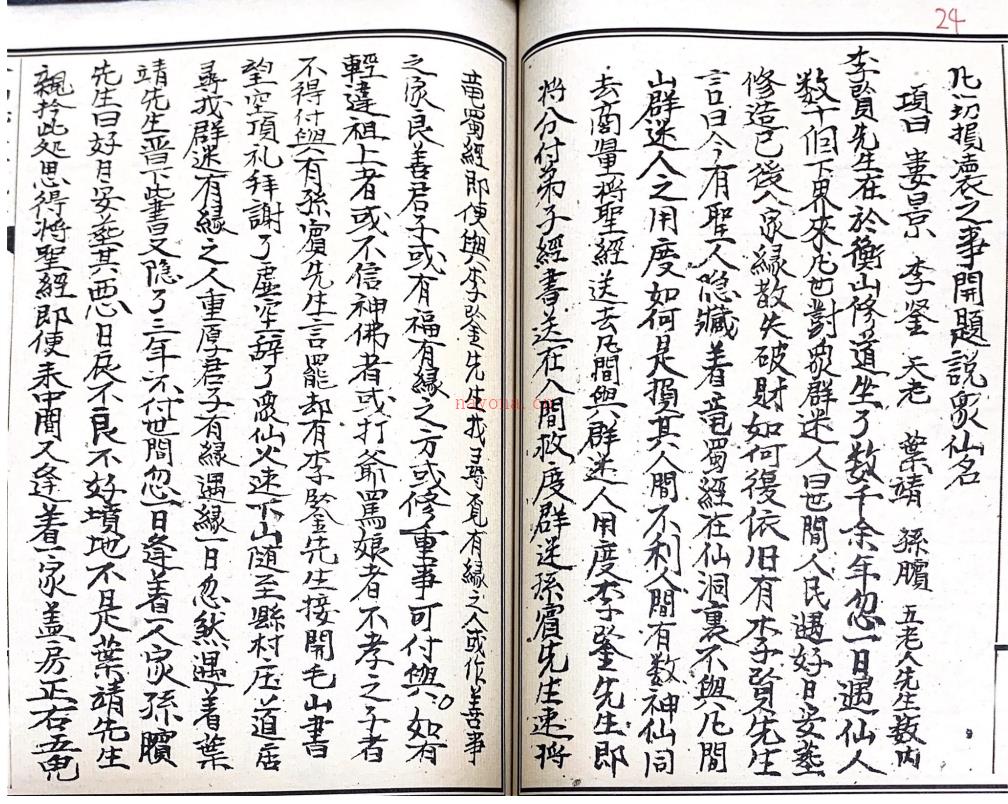 24
凡一切損瀆衰之事開題説衆仙名
項曰 婁景 李筌 天老 葉靖 孫臏 五老人先生数内
李賀先生在於衡山修道坐了数千余年忽一日遇仙人
数十個下界來凡世對衆群迷人曰世間人民遇好日安塟
修造已後人家緣散失破財如何復依旧有李賀先生
言曰今有聖人隐藏着竜蜀經在仙洞裏不與凡間
山群迷人之用度如何是損其人間不利人間有数神仙同
去啇量將聖經送去凡間與群迷人用度李筌先生即
將分付弟子經書送在人間救度群迷孫賓先生速將
竜蜀經即便與李筌先生找尋覓有緣之人或作善事
之家良善君子或有福有緣之方或修重事可付與如有
輕違祖上者或不信神佛者或打爺罵娘者不孝之子者
不得付與有孫賓先生言罷却有李筌先生接開毛山書
望空頂礼拜謝了虚空辞了衆仙火速下山随至縣村庄道店
尋找群迷有緣之人重厚君子有緣遇緣一日忽然遇着葉
靖先生晋下此書又隐了三年不付世間忽一日逢着人家孫臏
先生曰好月安塟其悪日辰不良不好墳地不是葉靖先生
親於此処思得將聖經即便未中間又逢着一家盖房正右五鬼
nayona.cn